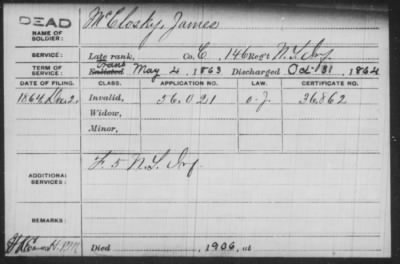 DEAD
NAME OF SOLDIER:
McClosky, James
SERVICE: Late rank, Co. C, 146 Reg't N.Y. Inf.
TERM OF SERVICE: Trans Enlisted May 4, 1863 Discharged Oct 31, 1864
DATE OF FILING. CLASS. APPLICATION NO. LAW. CERTIFICATE NO.
1864, Dec 2. Invalid, 56.021 O.L. 36.862
Widow,
Minor,
ADDITIONAL SERVICES: F. 5 N.Y. Inf.
REMARKS:
Died , 1906, at